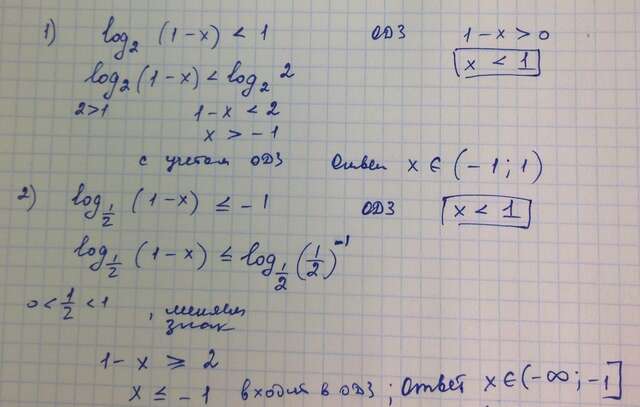 1) log₂ (1-x) < 1 ОДЗ 1-x > 0
x < 1
log₂ (1-x) < log₂ 2
2>1 1-x < 2
x > -1
с учетом ОДЗ Ответ x ∈ (-1; 1)
2) log_{1/2} (1-x) ≤ -1 ОДЗ x < 1
log_{1/2} (1-x) ≤ log_{1/2} (1/2)^{-1}
0 < 1/2 < 1 , меняем
знак
1-x ≥ 2
x ≤ -1 входит в ОДЗ ; Ответ x ∈ (-∞; -1]